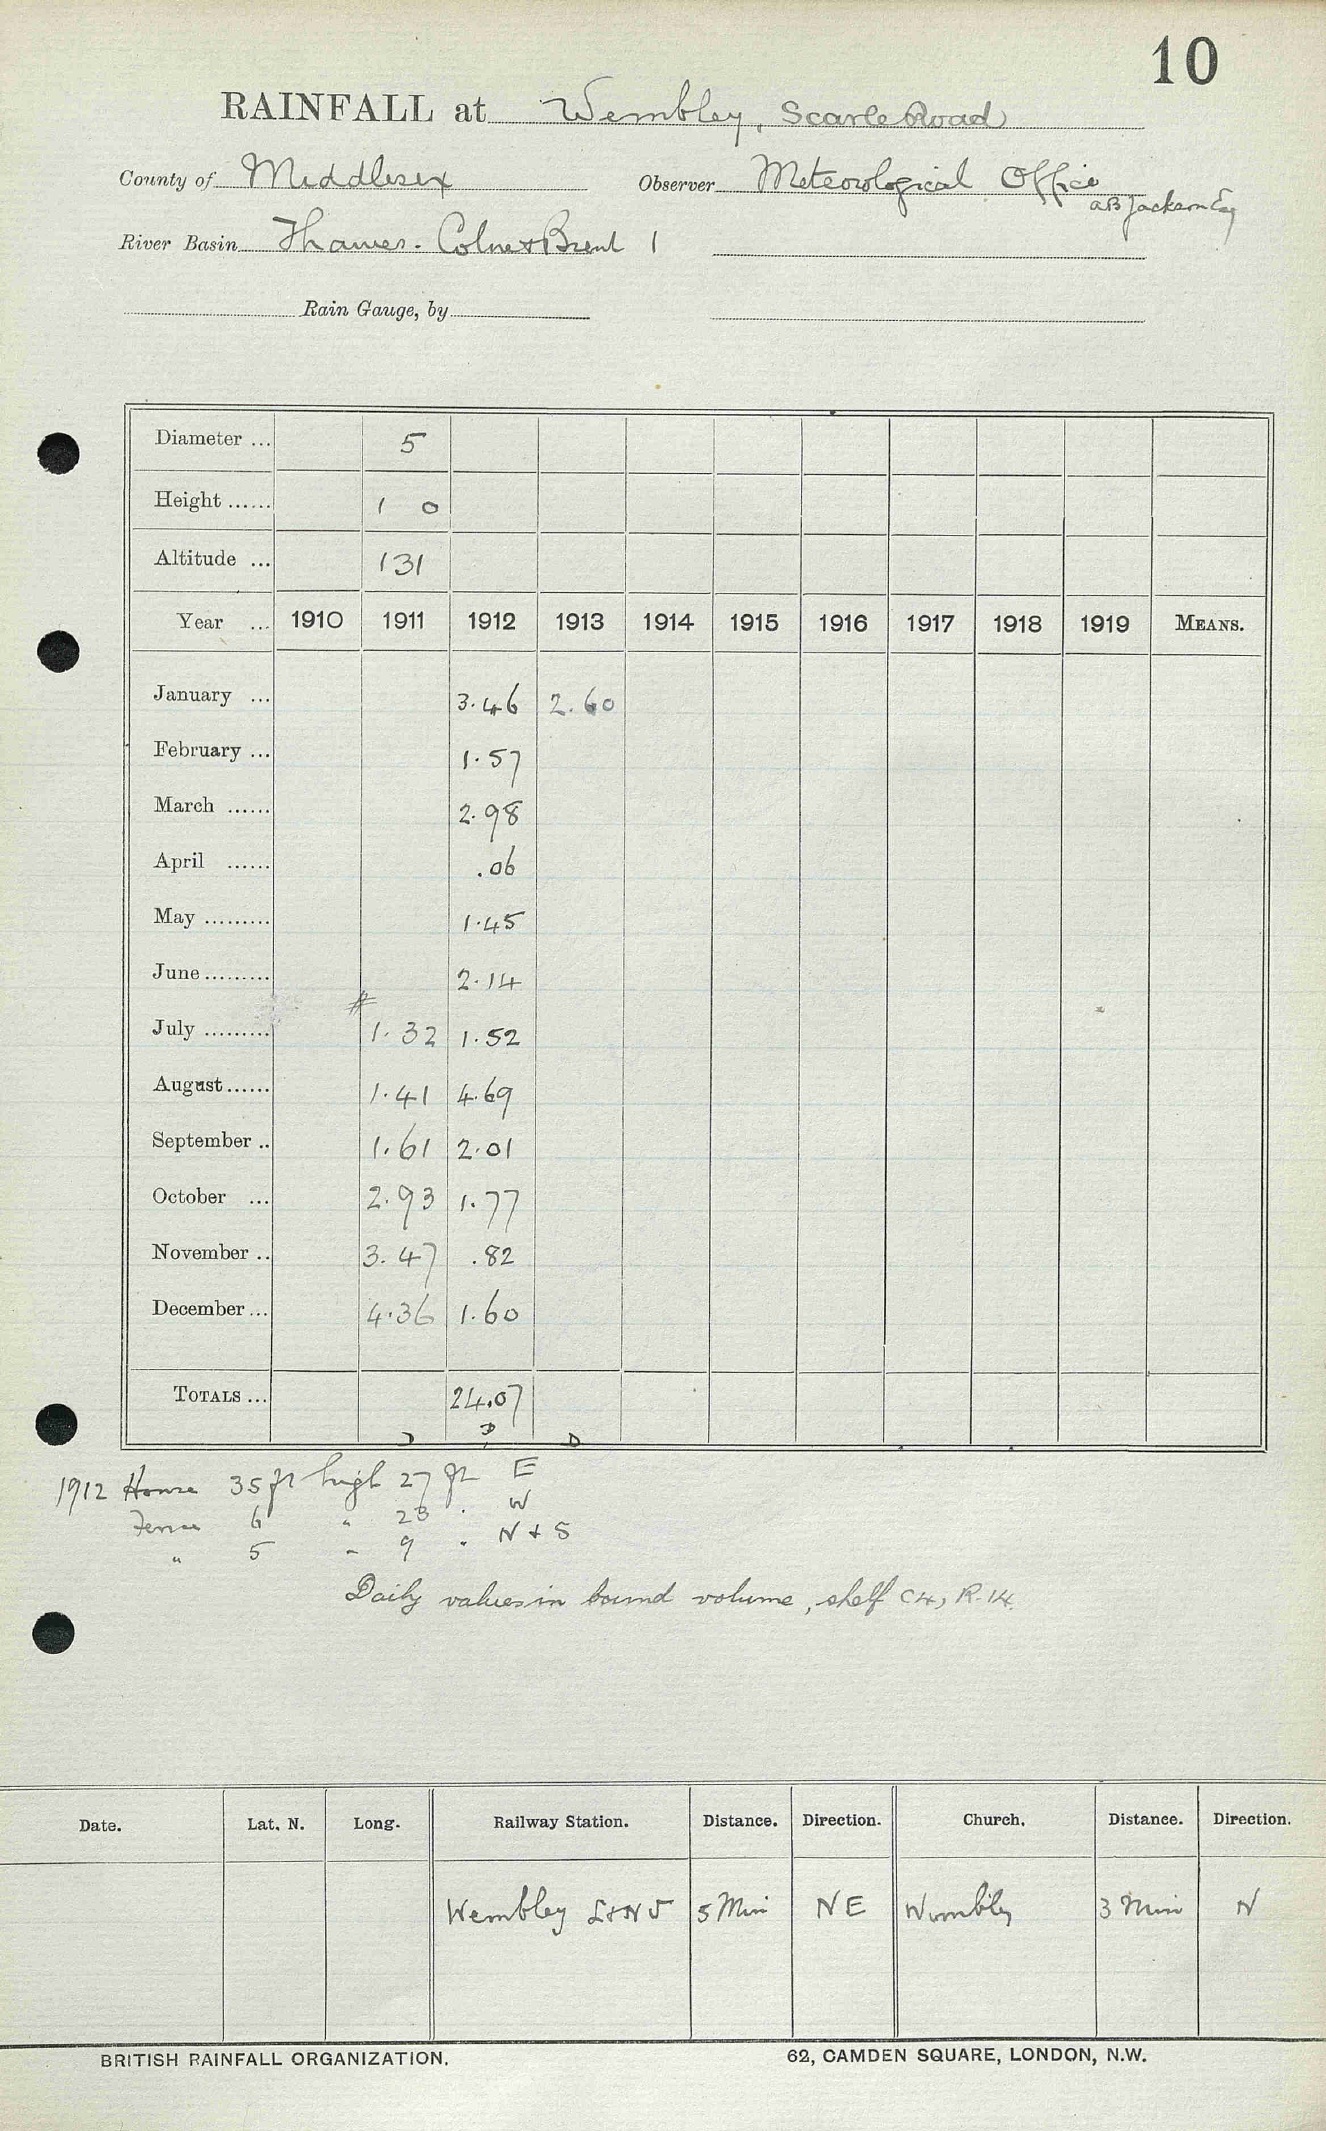 10
RAINFALL at Wembley, Scarle Road
County of Middlesex Observer Meteorological Office
AB Jackson Esq
River Basin Thames. Colne & Brent 1
Rain Gauge, by
Diameter ... 5
Height ...... 1 0
Altitude ... 131
Year ... 1910 1911 1912 1913 1914 1915 1916 1917 1918 1919 MEANS.
January ... 3.46 2.60
February ... 1.57
March ...... 2.98
April ...... .06
May ......... 1.45
June ......... 2.14
#
July ......... 1.32 1.52
August ...... 1.41 4.69
September .. 1.61 2.01
October ... 2.93 1.77
November .. 3.47 .82
December ... 4.36 1.60
TOTALS ... 24.07
D D D
1912 House 35 ft high 27 ft E
Fence 6 " 23 " W
" 5 " 9 " N + S
Daily values in bound volume, shelf C4, R.14.
Date. Lat. N. Long. Railway Station. Distance. Direction. Church. Distance. Direction.
Wembley 5 Min NE Wembley 3 Min N
BRITISH RAINFALL ORGANIZATION. 62, CAMDEN SQUARE, LONDON, N.W.